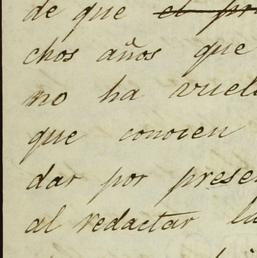 de que el pr
chos años que
no ha vuel
que conocen
dar por prese
al redactar la